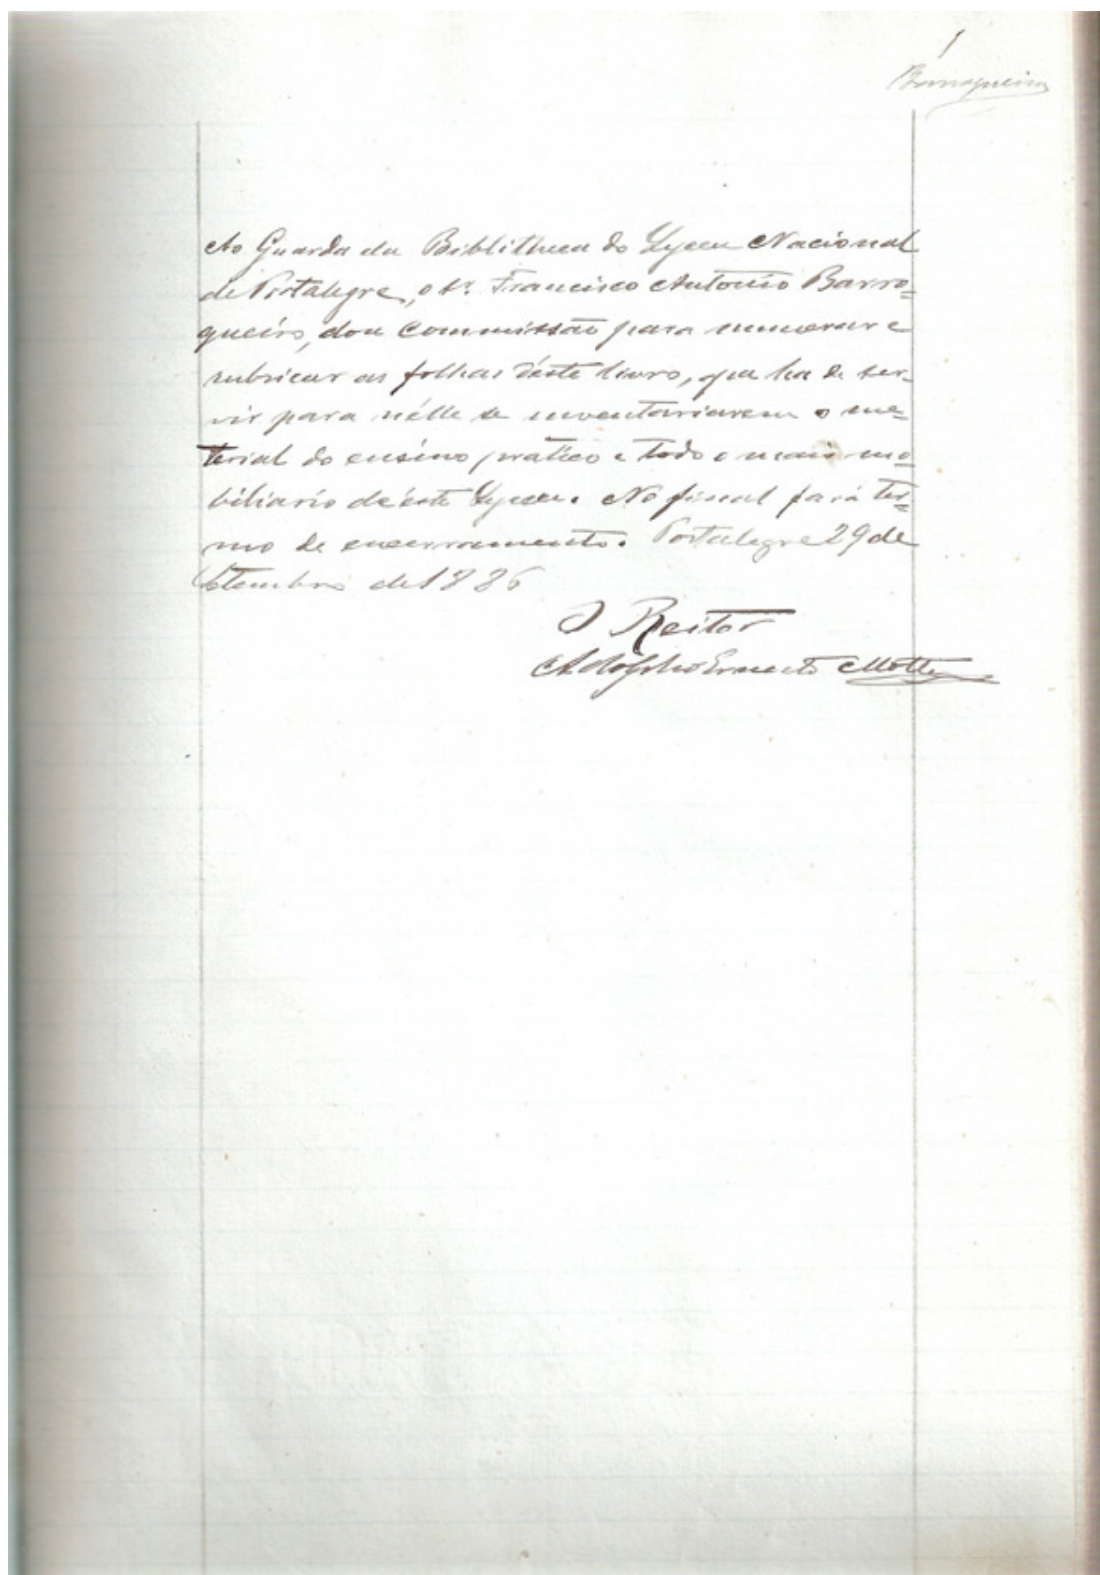 1
Barroqueiro
Ao Guarda da Biblitheca do Lyceu Nacional
de Portalegre, o Sr. Francisco Antonio Barro-
queiro, dou Commissão para numerar e
rubricar as folhas d'éste livro, que ha de ser-
vir para n'élle se inventariarem o ma-
terial do ensino pratico e todo o mais mo-
biliario de éste Lyceu. No final fará ter-
mo de encerramento. Portalegre 29 de
Setembro de 1886
O Reitor
Adolpho Ernesto Motta